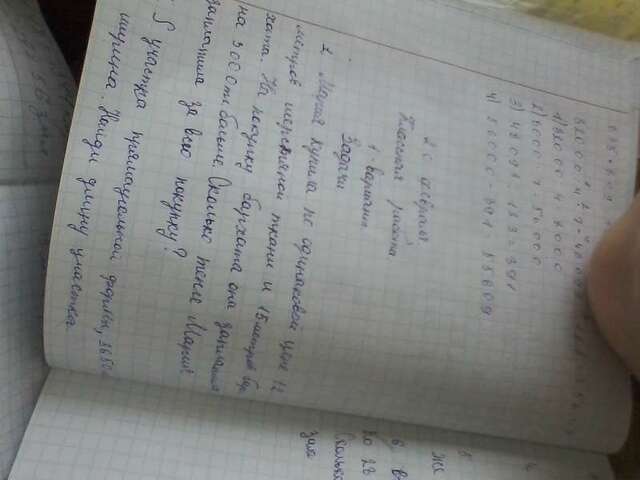 32000 : 4 · 7 -
1) 32000 : 4 = 8000
2) 8000 · 7 = 56000
3) 48093 : 123 = 391
4) 56000 - 391 = 55609
20 февраля.
Классная работа.
1-вариант.
Задачи
1. Мария купила по одинаковой цене 12
метров шерстяной ткани и 15 метров бар
хата. На покупку бархата она заплатила
на 3000тг больше. Сколько тенге Мария
заплатила за всю покупку?
S участка прямоугольной формы, 3650
ширина. Найди длину участка.
5
же
6. В-
ко 28
Сколько
зало